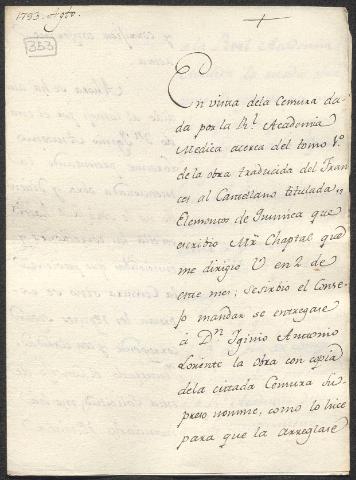 1793. Agto.
353
En vista dela Censura da-
da por la Rl. Academia
Medica acerca del tomo 1.º
de la obra traducida del Fran-
ces al Castellano titulada,,
Elementos de Quimica que
escribio Mr. Chaptal que
me dirigio V en 2 de
este mes; se sirbio el Conse-
jo mandar se entregase
á Dn. Iginio Antonio
Lorente la obra con copia
dela citada Censura su-
preso nomine, como lo hice
para que la arreglase